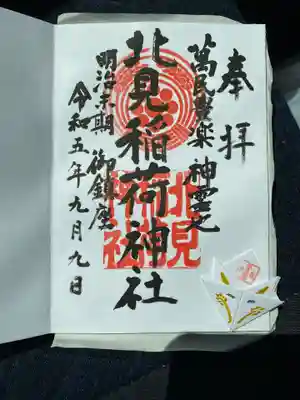 奉拝
萬民豊楽神霊地
北見稲荷神社
北見
神社
明治末期 御鎮座
令和五年九月九日